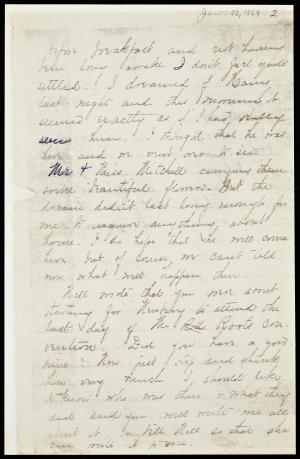 Jan. 22, 1869 2
before breakfast and not having
been long awake I don't feel quite
settled! I dreamed of
last night and this morning it
seemed exactly as if I had really
seen him. I thought that he was
here and we went over to see
Mr & Miss Mitchell carrying them
some beautiful flowers. But the
dream didn't last long enough for
me to inquire anything about
home. I do hope that he will come
here but of course, we can't tell
now what will happen then.
Nell wrote that you were about
starting for Newbury to attend the
last day of the Convention
. Did you have a good
time? Now just stop and think
how very much I should like
to know who was there & what they
said and you will write me all
about it. or tell Nell so that she
can write to me.